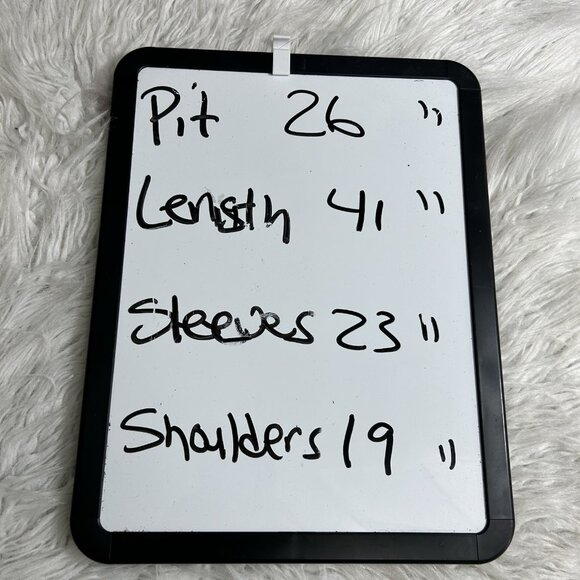 Pit 26 "
Length 41 "
Sleeves 23 "
Shoulders 19 "